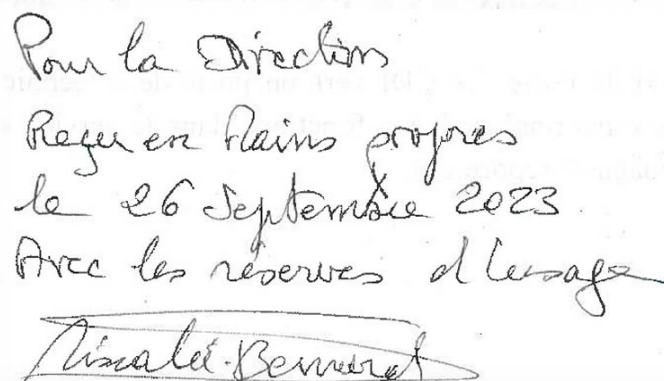 Pour la Direction
Reçu en Mains propres
le 26 Septembre 2023
Avec les réserves d'usage